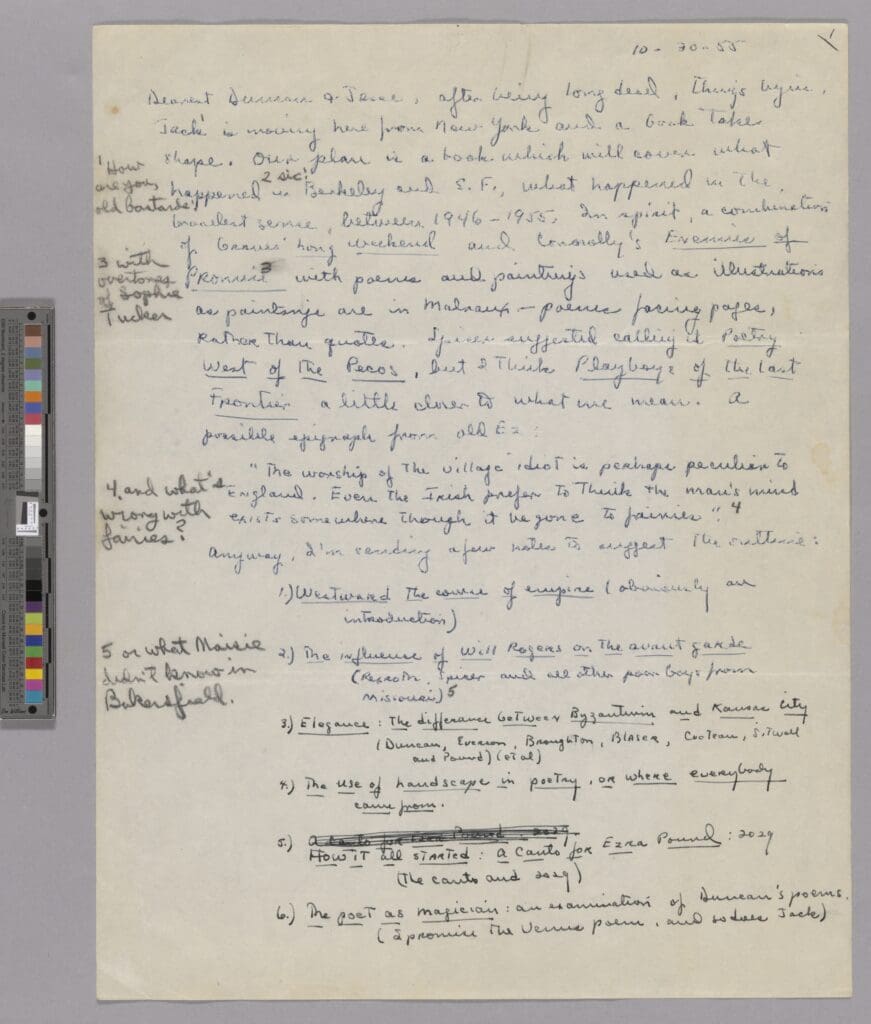 10-30-55
1
Dearest Duncan & Jesse, after being long dead, things begin.
Jack¹ is moving here from New York and a book takes
shape. Our plan is a book which will cover what
happened in² Berkeley and S.F., what happened in the
broadest sense, between 1946-1955. In spirit, a combination
of Graves' Long weekend and Connolly's Enemies of
Promise³ with poems and paintings used as illustrations
as paintings are in Malraux - poems facing pages,
rather than quotes. Spicer suggested calling it Poetry
West of the Pecos, but I think Playboys of the Last
Frontier a little closer to what we mean. A
possible epigraph from old Ez:
"The worship of the village idiot is perhaps peculiar to
England. Even the Irish prefer to think the man's mind
exists somewhere though it be gone to fairies".⁴
Anyway, I'm sending a few notes to suggest the outline:
1.) Westward the course of empire (obviously an
introduction)
2.) The influence of Will Rogers on the avant garde
(Rexroth, Spicer and all other poor boys from
Missouri)⁵
3) Elegance: The difference between Byzantium and Kansas City
(Duncan, Everson, Broughton, Blaser, Cocteau, Sitwell
and Pound) (et al)
4.) The use of landscape in poetry, or where everybody
came from.
5.) A Canto for Ezra Pound: 2029
How it all started: A Canto for Ezra Pound: 2029
(The canto and 2029)
6.) The poet as magician: an examination of Duncan's poems.
(I promise the Venus poem, and so does Jack)
1 How
are you,
old bastards!
2 sic!
3 with
overtones
of Sophie
Tucker
4. and what's
wrong with
fairies?
5 or what Maisie
didn't know in
Bakersfield.